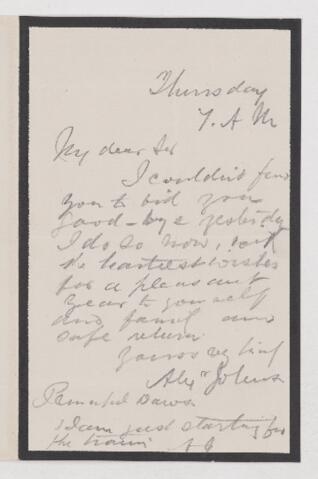 Thursday
7. A M
My dear Sir
I couldn't find
you to bid you
good-bye yesterday
I do so now, with
the heartiest wishes
for a pleasant
year to yourself
and family and
safe return.
Yours very truly
Alex Johns
I am just starting for
the train A J